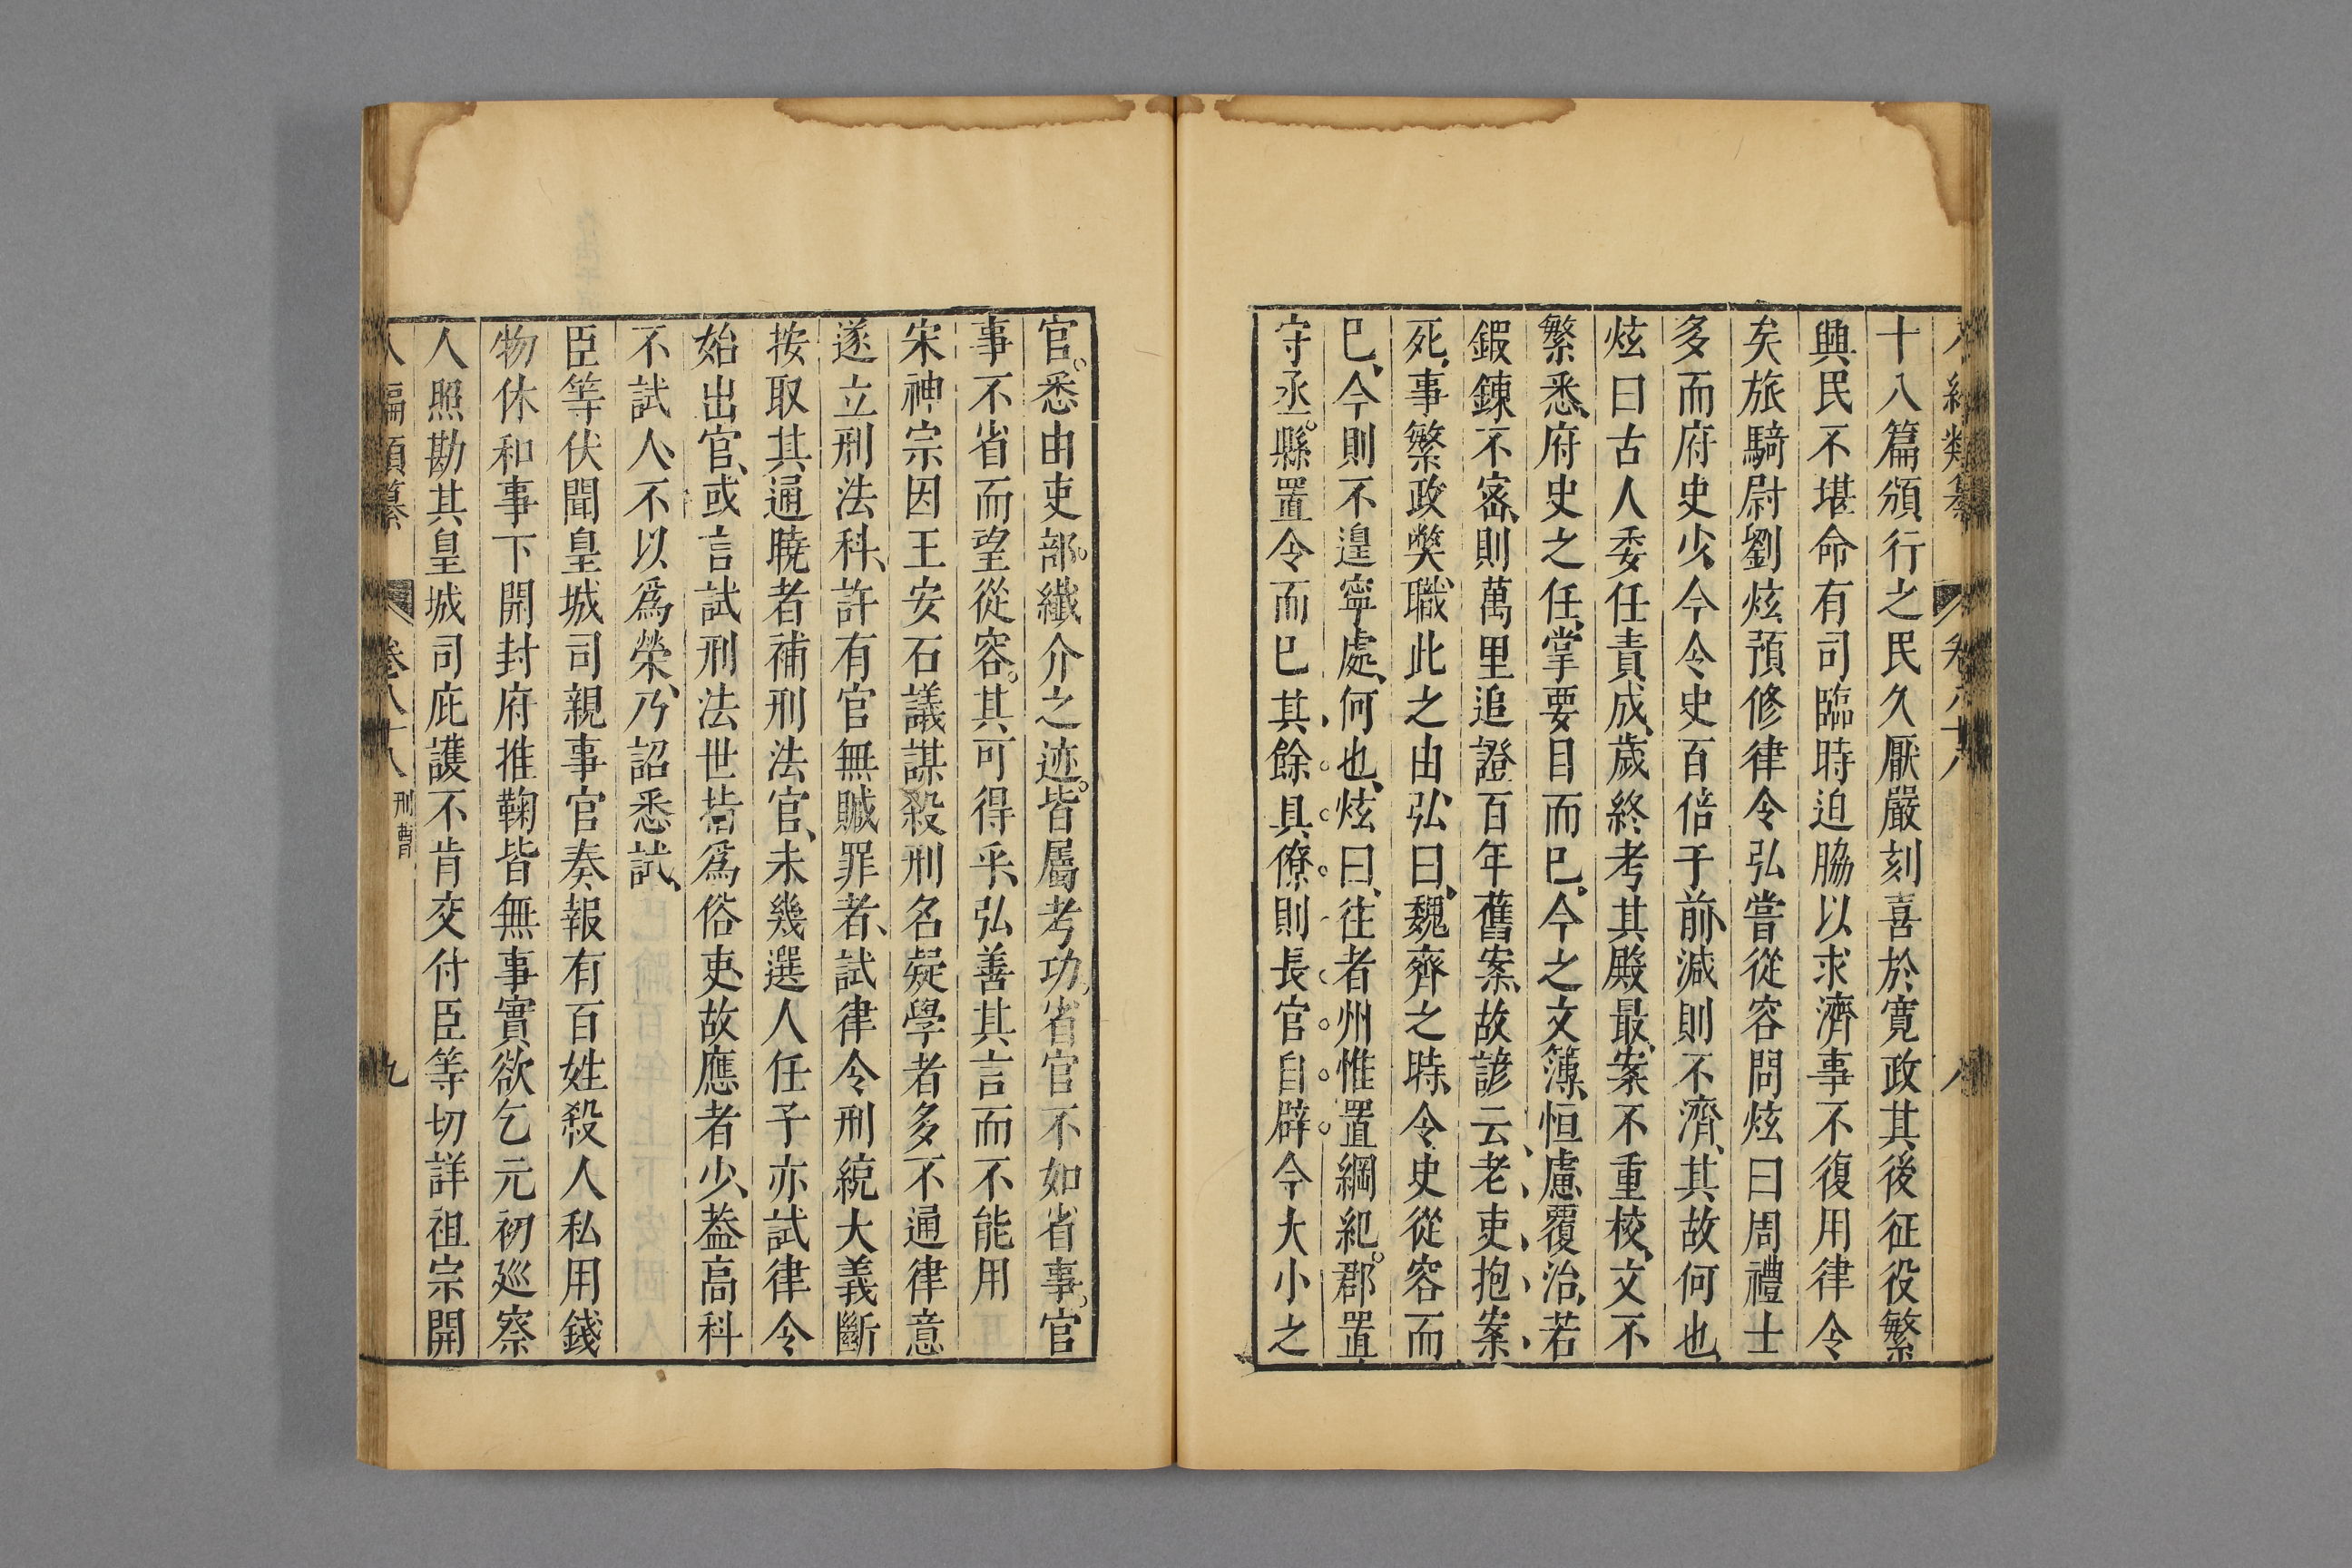 十八篇頒行之民久厭嚴刻喜於寛政其後征役繁
興民不堪命有司臨時迫脇以求濟事不復用律令
矣旅騎尉劉炫預修律令弘嘗從容問炫曰周禮士
多而府史少、今令史百倍于前、減則不濟、其故何也、
炫曰古人委任責成、歲終考其殿最、案不重校、文不
繁悉、府史之任、掌要目而已。今之文簿、恒慮覆治、若
鍜鍊不宻、則萬里追證百年舊案、故諺云、老吏抱案
死、事繁政獘、職此之由、弘曰、魏齊之時、令史從容而
已、今則不遑寧處、何也、炫曰、往者州惟置綱紀。郡置
守丞。縣置令而已其餘具僚則長官自辟今大小之
官。悉由吏部。纎介之迹。皆屬考功。省官不如省事。官
事不省而望從容。其可得乎、弘善其言而不能用
宋神宗因王安石議謀殺刑名疑學者多不通律意
遂立刑法科、許有官無贓罪者、試律令刑統大義斷
按取其通曉者補刑法官、未幾選人任子亦試律令
始出官、或言試刑法世皆爲俗吏、故應者少、葢高科
不試人、不以爲榮、乃詔悉試、
臣等伏聞皇城司親事官奏報有百姓殺人私用錢
物休和事下開封府推鞠皆無事實欲乞元初廵察
人照勘其皇城司庇護不肯交付臣等切詳祖宗開
八編類纂 卷八十八 刑曹 九